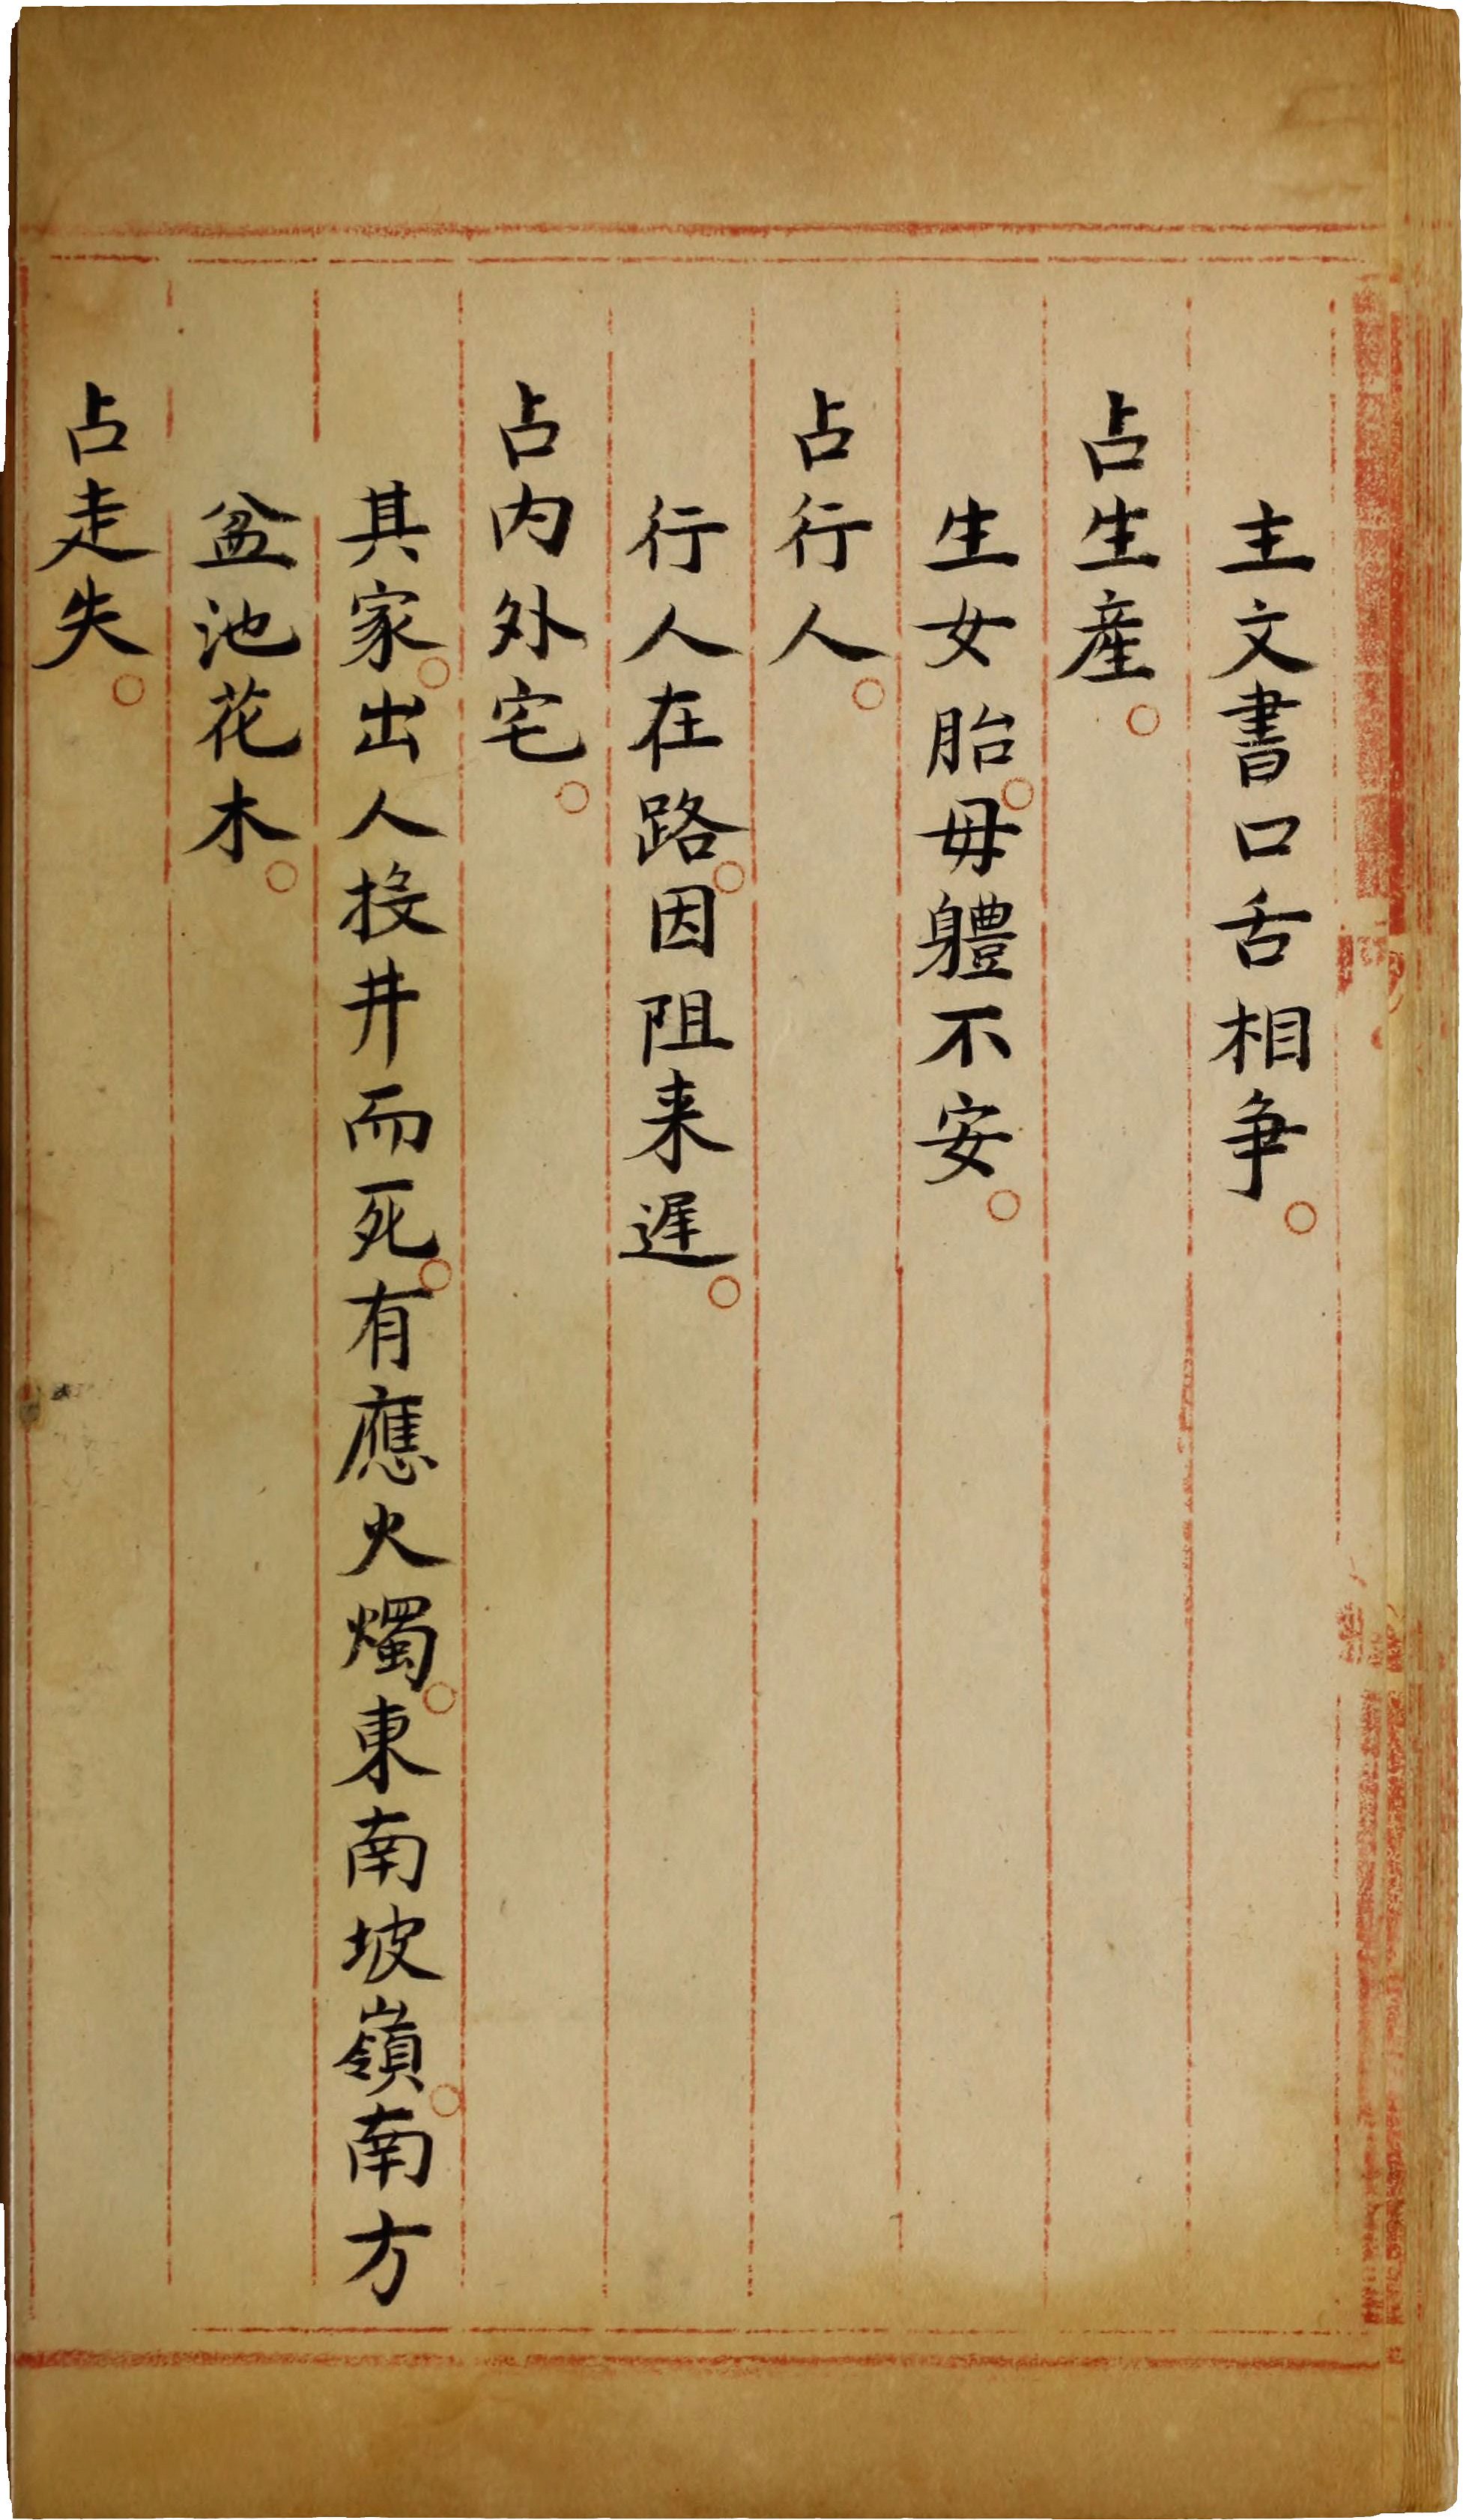 主文書口舌相争。
占生産。
生女胎。毋軆不安。
占行人。
行人在路。因阻来遲。
占内外宅。
其家。出人投井而死。有應火燭。東南坡嶺。南方
盆池花木。
占走失。